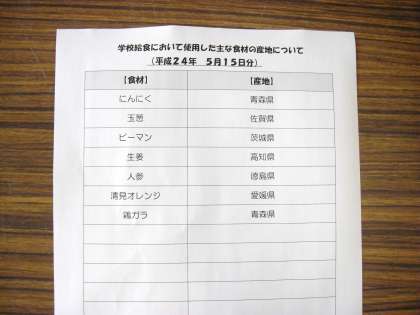 学校給食において使用した主な食材の産地について
（平成２４年　５月１５日分）
【食材】 【産地】
にんにく 青森県
玉葱 佐賀県
ピーマン 茨城県
生姜 高知県
人参 徳島県
清見オレンジ 愛媛県
鶏ガラ 青森県